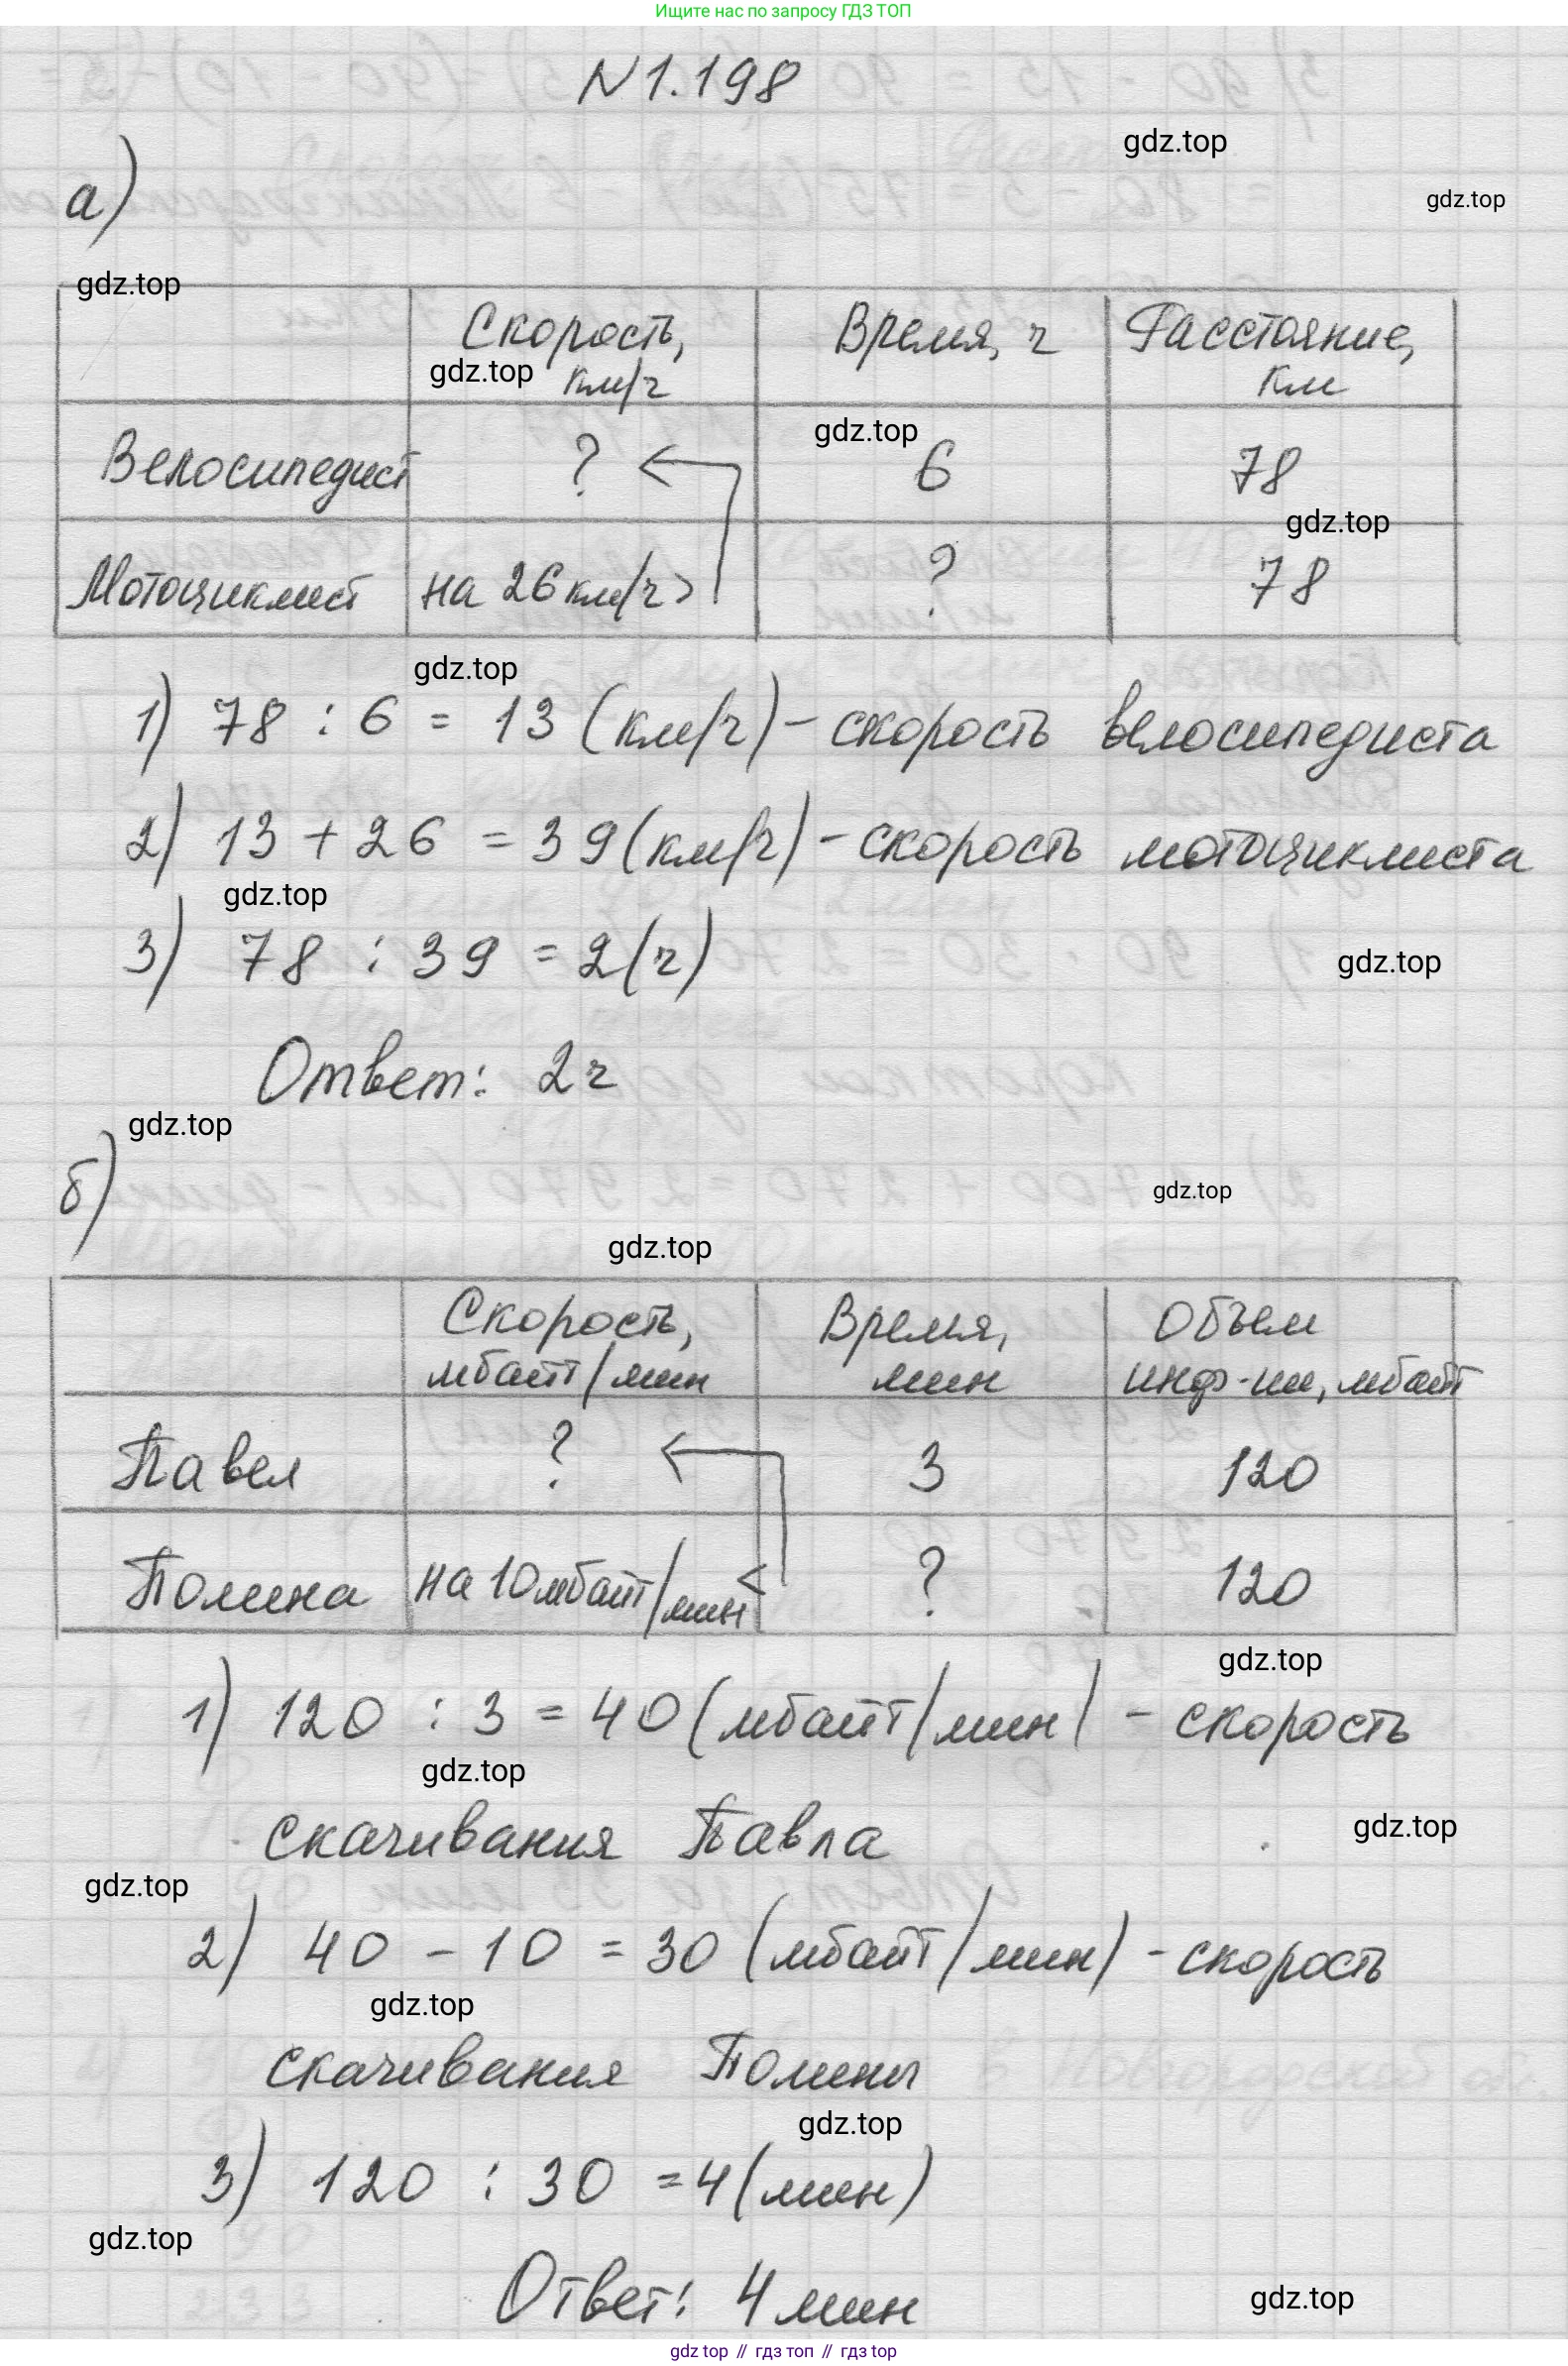 Ищите нас по запросу ГДЗ ТОП
N1.198
gdz.top
а)
gdz.top
gdz.top
Скорость, км/ч
Время, ч
Расстояние, км
gdz.top
Велосипедист ? 6 78
gdz.top
gdz.top
Мотоциклист на 26 км/ч > ? 78
gdz.top
1) 78 : 6 = 13 (км/ч) - скорость велосипедиста
2) 13 + 26 = 39 (км/ч) - скорость мотоциклиста
gdz.top
3) 78 : 39 = 2 (ч)
gdz.top
Ответ: 2 ч
gdz.top
б)
gdz.top
gdz.top
Скорость, мбайт/мин
Время, мин
Объем инф-ии, мбайт
Павел ? 3 120
Полина на 10 мбайт/мин < ? 120
gdz.top
1) 120 : 3 = 40 (мбайт/мин) - скорость
gdz.top
скачивания Павла
gdz.top
gdz.top
2) 40 - 10 = 30 (мбайт/мин) - скорость
gdz.top
скачивания Полины
gdz.top
3) 120 : 30 = 4 (мин)
gdz.top
Ответ: 4 мин
gdz.top
gdz top // гдз топ // гдз top